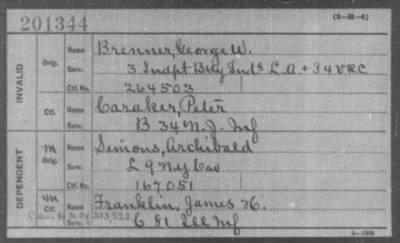 201344
(3-28-4)
INVALID
Orig.
Name
Brenner, George W.
Serv.
3 Indpt Bty Inds L.A + I 4 VRC
Ctf. No.
264503
Ctf.
Name
Caraker, Peter
Serv.
B 34 N.J. Inf
DEPENDENT
m
Orig.
Name
Simons, Archibald
Serv.
L 9 N.Y Cav
Ctf. No.
167051
m
Ctf.
Name
Franklin, James H.
Serv.
C 81 Ill Inf